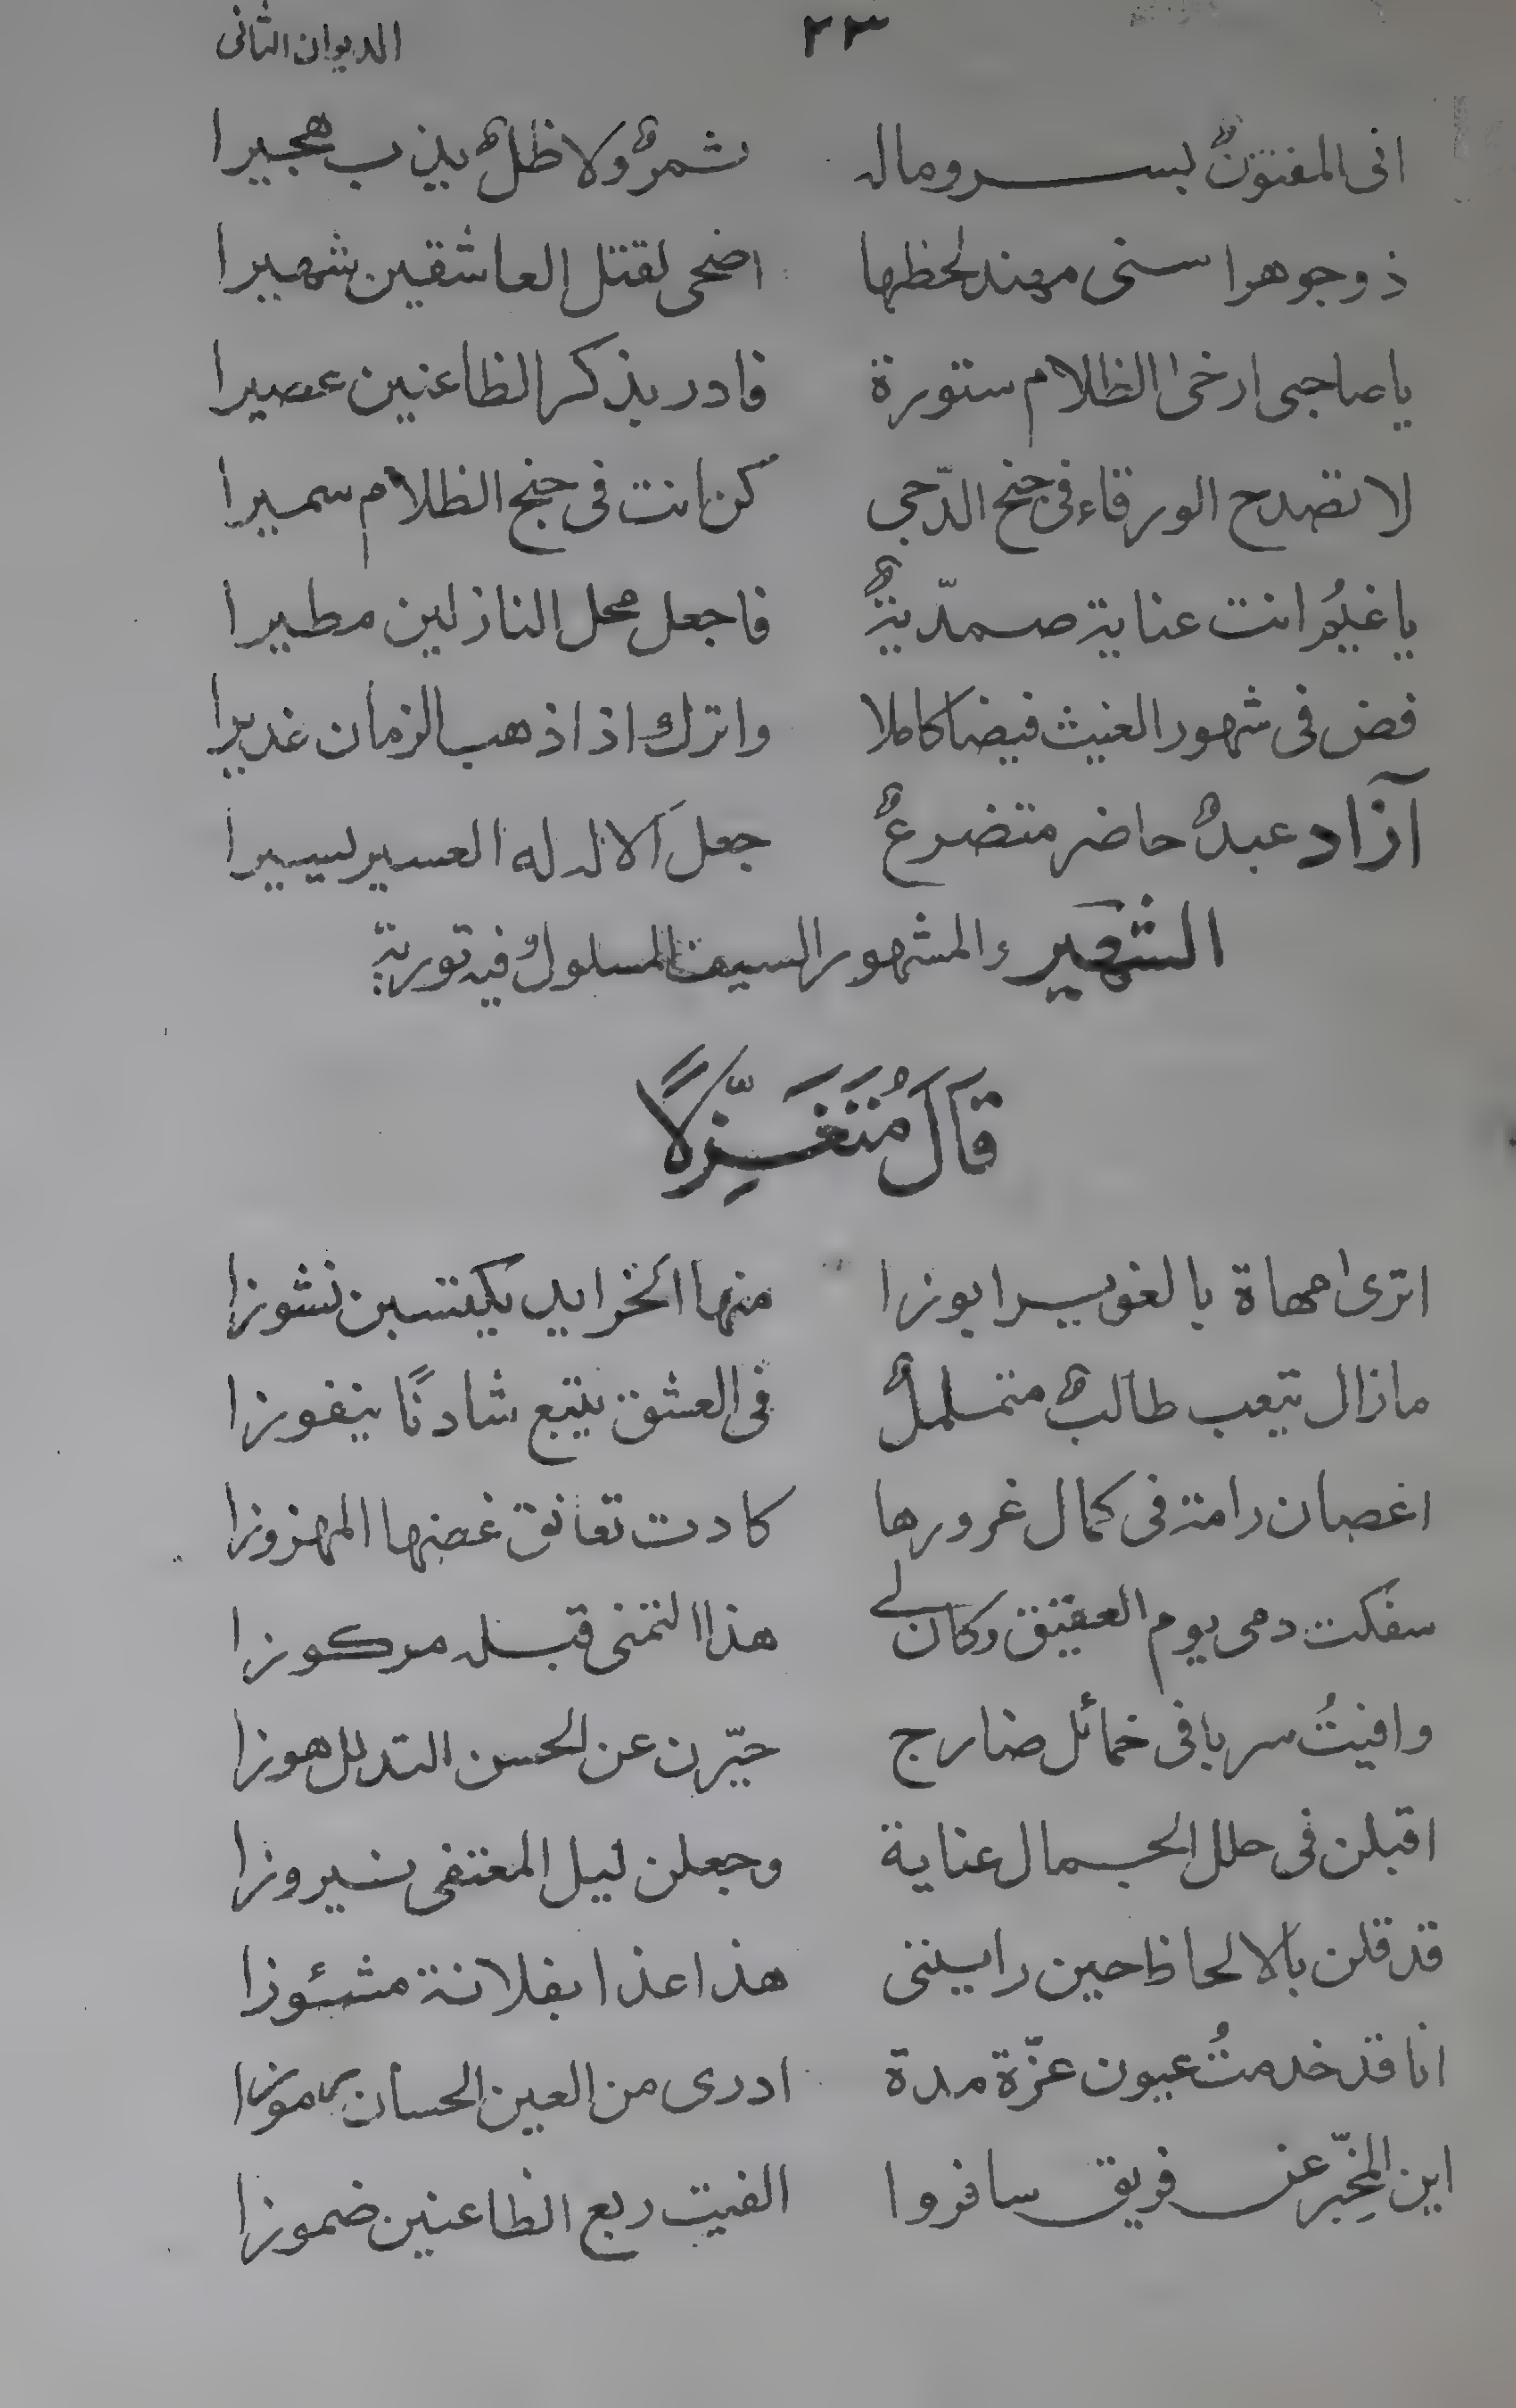 ٢٣ الديوان الثانى
انى لمفتونٌ بسرو ماله ثمرٌ ولا ظلٌ يذيب هجيرا
ذو جوهر اسنى مهند لحظها اضحى لقتل العاشقين شهيرا
يا صاحبى ارخى الظلام ستورة فادر بذكر الظاعنين عصيرا
لا تصدح الورقاء فى جنح الدّجى كن انت فى جنح الظلام سميرا
يا غيمُ انت عناية صمدّيةٌ فاجعل محل النازلين مطيرا
فض فى شهور الغيث فيضا كاملا واترك اذا ذهب الزمان غديرا
آزاد عبدٌ حاضر متضرعٌ جعلَ الاله له العسير يسيرا
الشهير المشهور السيف المسلولُ فيه تورية
قَالَ مُتَغَزِّلًا
اترى مهاة بالغوير ابوزا منها الخرايد يكتسبن نشوزا
مازال يتعب طالبٌ متململٌ فى العشق يتبع شادنًا ينفوزا
اغصان رامة فى كمال غرورها كادت تعانق غصنها المهزوزا
سفكت دمى يوم العقيق وكان لے هذا التمنى قبله مركوزا
وافيتُ سربا فى خمائل ضارج حيّرن عن الحسن التدلل هوزا
اقبلن فى حلل الجمال عناية وجعلن ليل المعتفى نيروزا
قد قلن بالالحاظ حين راينى هذا غدا بفلانة مشئوزا
انا قد خدمتُ عيون عزّة مدة ادرى من العين الحسان رموزا
اين المخِبّر عن فريق سافروا الفيت ربع الظاعنين ضموزا